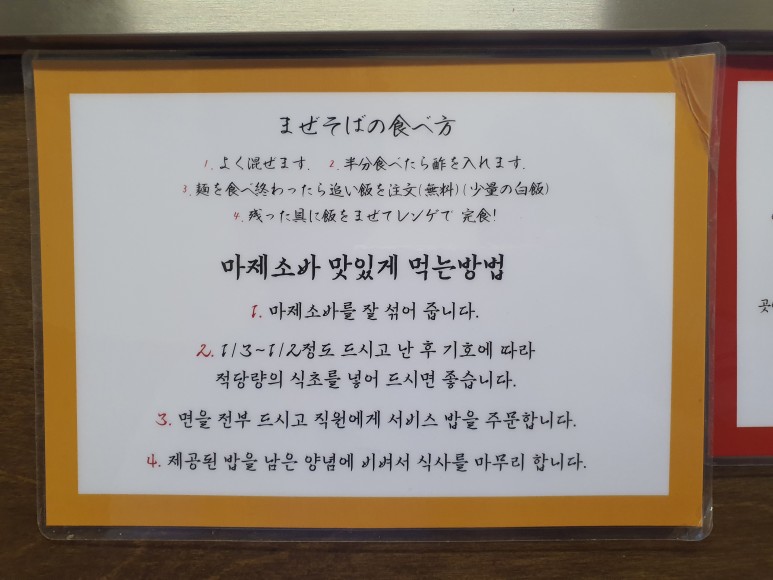 まぜそばの食べ方
1. よく混ぜます. 2. 半分食べたら酢を入れます.
3. 麺を食べ終わったら追い飯を注文(無料)(少量の白飯)
4. 残った具に飯をまぜてレンゲで 完食!
마제소바 맛있게 먹는방법
1. 마제소바를 잘 섞어 줍니다.
2. 1/3~1/2정도 드시고 난 후 기호에 따라
적당량의 식초를 넣어 드시면 좋습니다.
3. 면을 전부 드시고 직원에게 서비스 밥을 주문합니다.
4. 제공된 밥을 남은 양념에 비벼서 식사를 마무리 합니다.